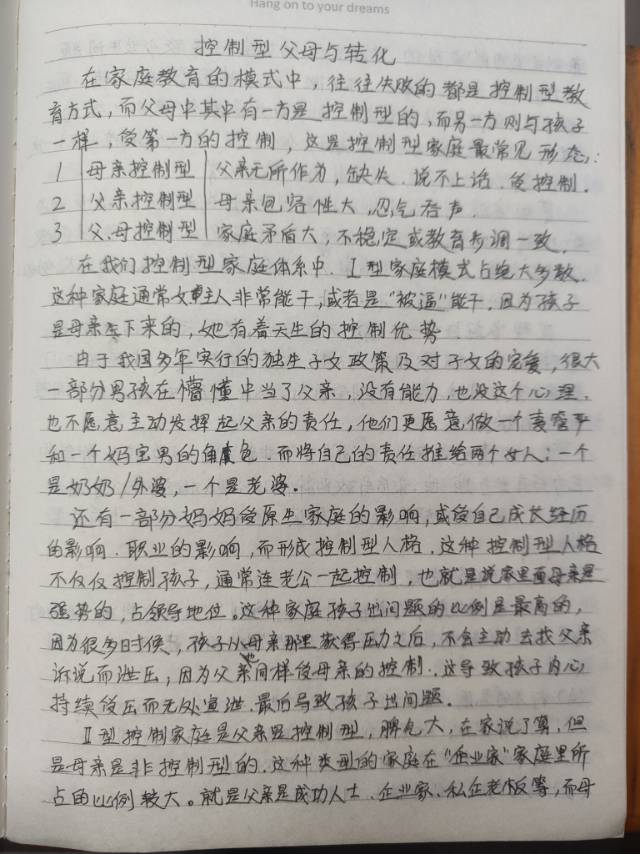 Hang on to your dreams
控制型父母与转化
在家庭教育的模式中，往往失败的都是控制型教
育方式，而父母中其中有一方是控制型的，而另一方则与孩子
一样，受第一方的控制，这是控制型家庭最常见形态：
1 母亲控制型 父亲无所作为，缺失．说不上话．受控制．
2 父亲控制型 母亲包容性大，忍气吞声．
3 父．母控制型 家庭矛盾大，不稳定或教育步调一致．
在我们控制型家庭体系中．I型家庭模式占绝大多数．
这种家庭通常女主人非常能干，或者是“被逼”能干．因为孩子
是母亲生下来的，她有着天生的控制优势．
由于我国多年实行的独生子女政策及对子女的宠爱，很大
一部分男孩在懵懂中当了父亲，没有能力，也没这个心理，
也不愿意主动发挥起父亲的责任，他们更愿意做一个
和一个妈宝男的角色．而将自己的责任推给两个女人：一个
是奶奶/外婆，一个是老婆。
还有一部分妈妈受原生家庭的影响，或受自己成长经历
的影响．职业的影响，而形成控制型人格．这种控制型人格
不仅仅控制孩子，通常连老公一起控制，也就是说家里面母亲是
强势的，占领导地位。这种家庭孩子出问题的比例是最高的，
因为很多时候，孩子从母亲那里获得压力之后，不会主动去找父亲
诉说而泄压，因为父亲他同样受母亲的控制．这导致孩子内心
持续受压而无处宣泄．最后导致孩子出问题．
II型控制家庭是父亲是控制型，脾气大，在家说了算，但
是母亲是非控制型的．这种类型的家庭在“企业家”家庭里所
占的比例较大。就是父亲是成功人士．企业家、私企老板等，而母